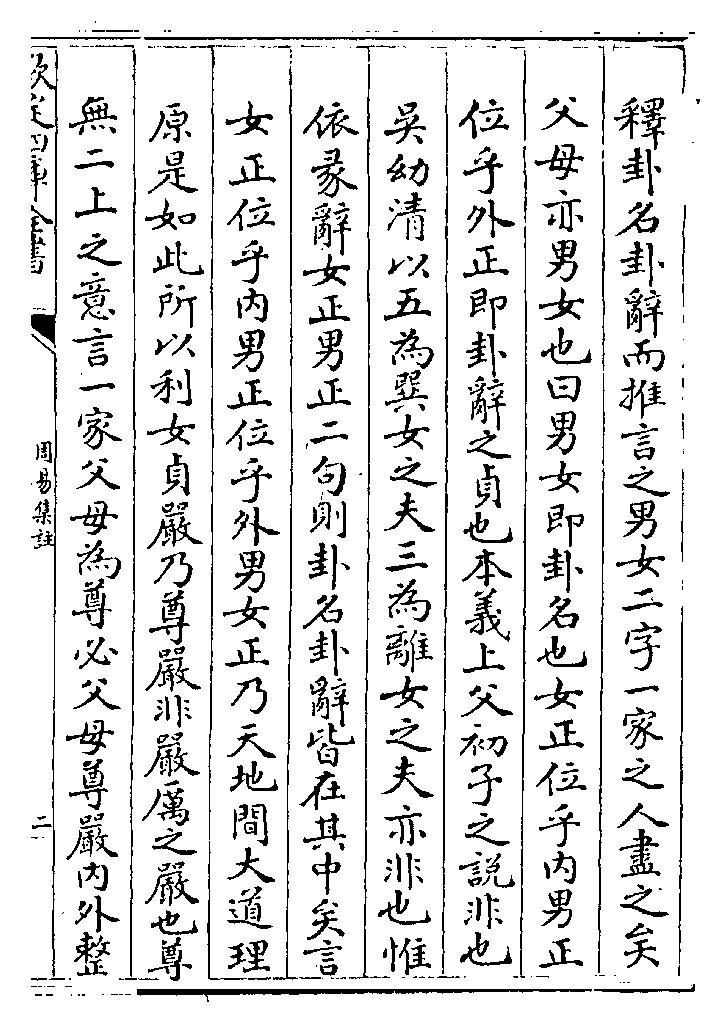 釋卦名卦辭而推言之男女二字一家之人盡之矣
父母亦男女也曰男女即卦名也女正位乎内男正
位乎外正即卦辭之貞也本義上父初子之説非也
吳幼清以五為巽女之夫三為離女之夫亦非也惟
依彖辭女正男正二句則卦名卦辭皆在其中矣言
女正位乎内男正位乎外男女正乃天地間大道理
原是如此所以利女貞嚴乃尊嚴非嚴厲之嚴也尊
無二上之意言一家父母為尊必父母尊嚴内外整
欽定四庫全書
周易集註
二